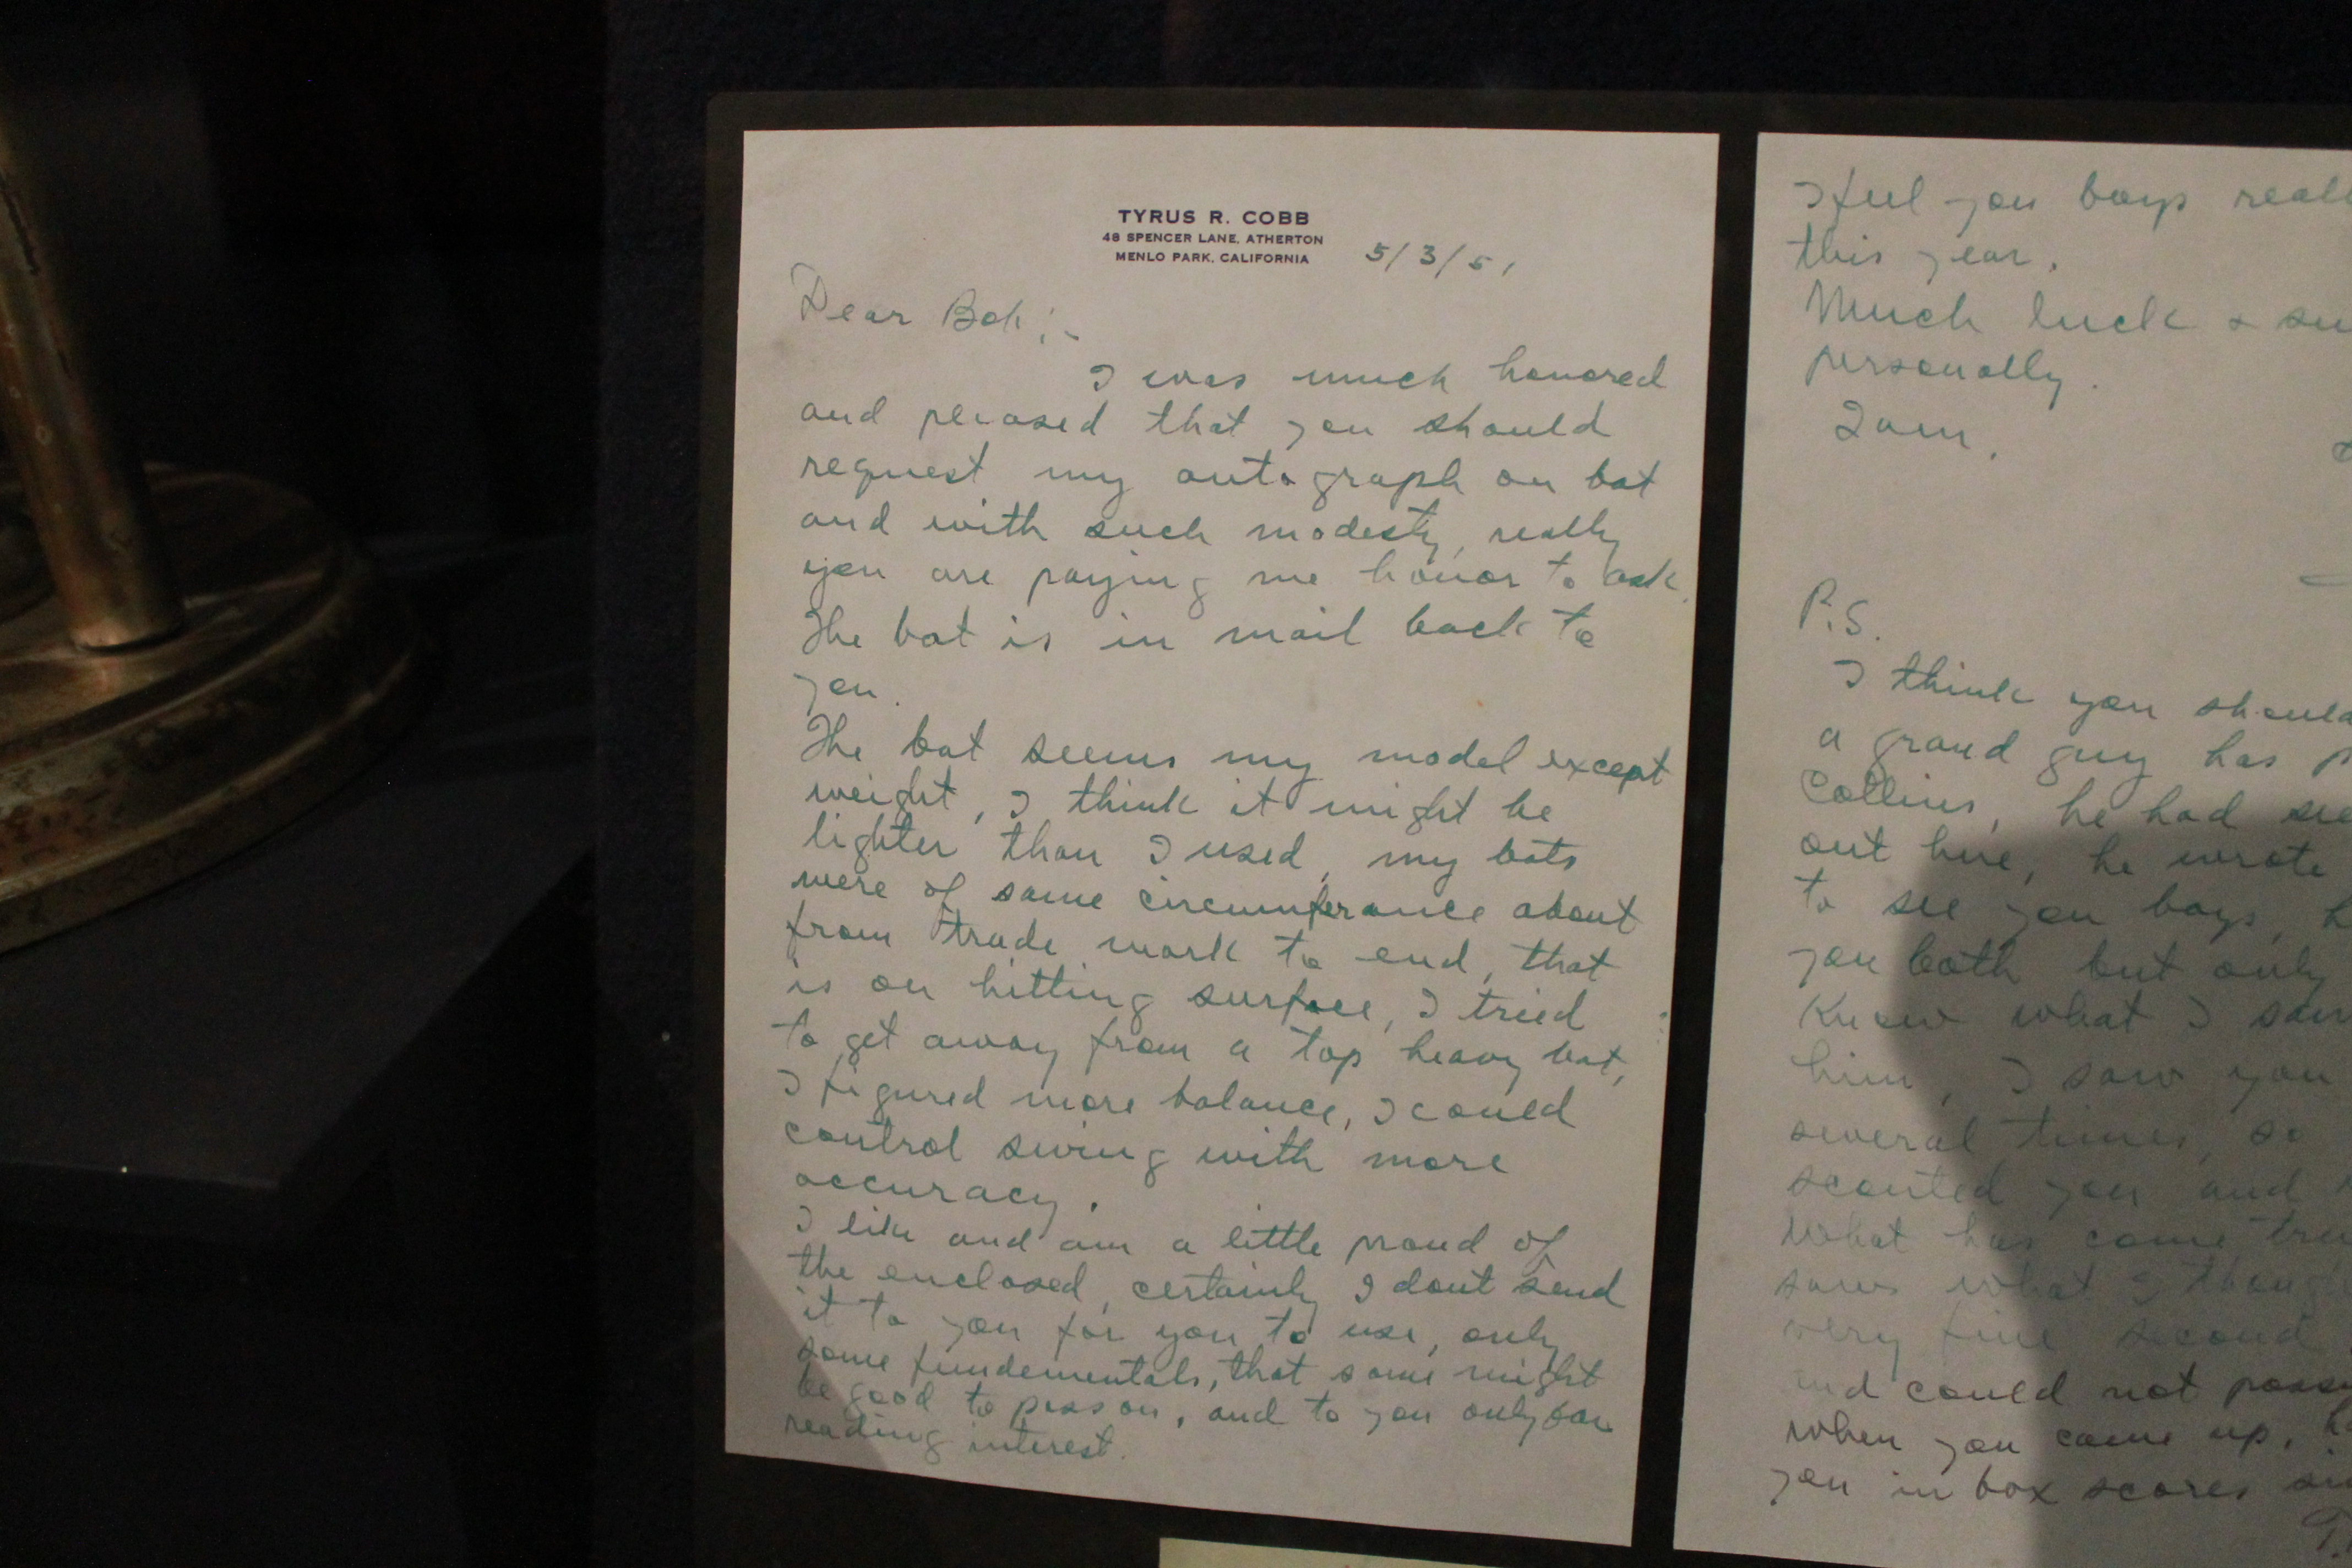 TYRUS R. COBB
48 SPENCER LANE, ATHERTON
MENLO PARK, CALIFORNIA
5/3/51
Dear Bob:-
I was much honored
and pleased that you should
request my autograph on bat
and with such modesty, really
you are paying me honor to ask.
The bat is in mail back to
you.
The bat seems my model except
weight, I think it might be
lighter than I used, my bats
were of same circumferance about
from trade mark to end, that
is on hitting surface, I tried
to get away from a top heavy bat,
I figured more balance, I could
control swing with more
accuracy.
I like and am a little proud of
the enclosed, certainly I dont send
it to you for you to use, only
some fundementals, that some might
be good to pass on, and to you only for
reading interest.
I feel you boys
this year.
Much luck &
personally.
I am,
P.S.
I think you should
a grand guy has
Collins, he had
out here, he wrote
to see you boys,
you both but only
knew what I
him, I saw you
several times, so
scouted you and
what has come
saw what I
very fine second
and could not
when you came up,
you in box scores